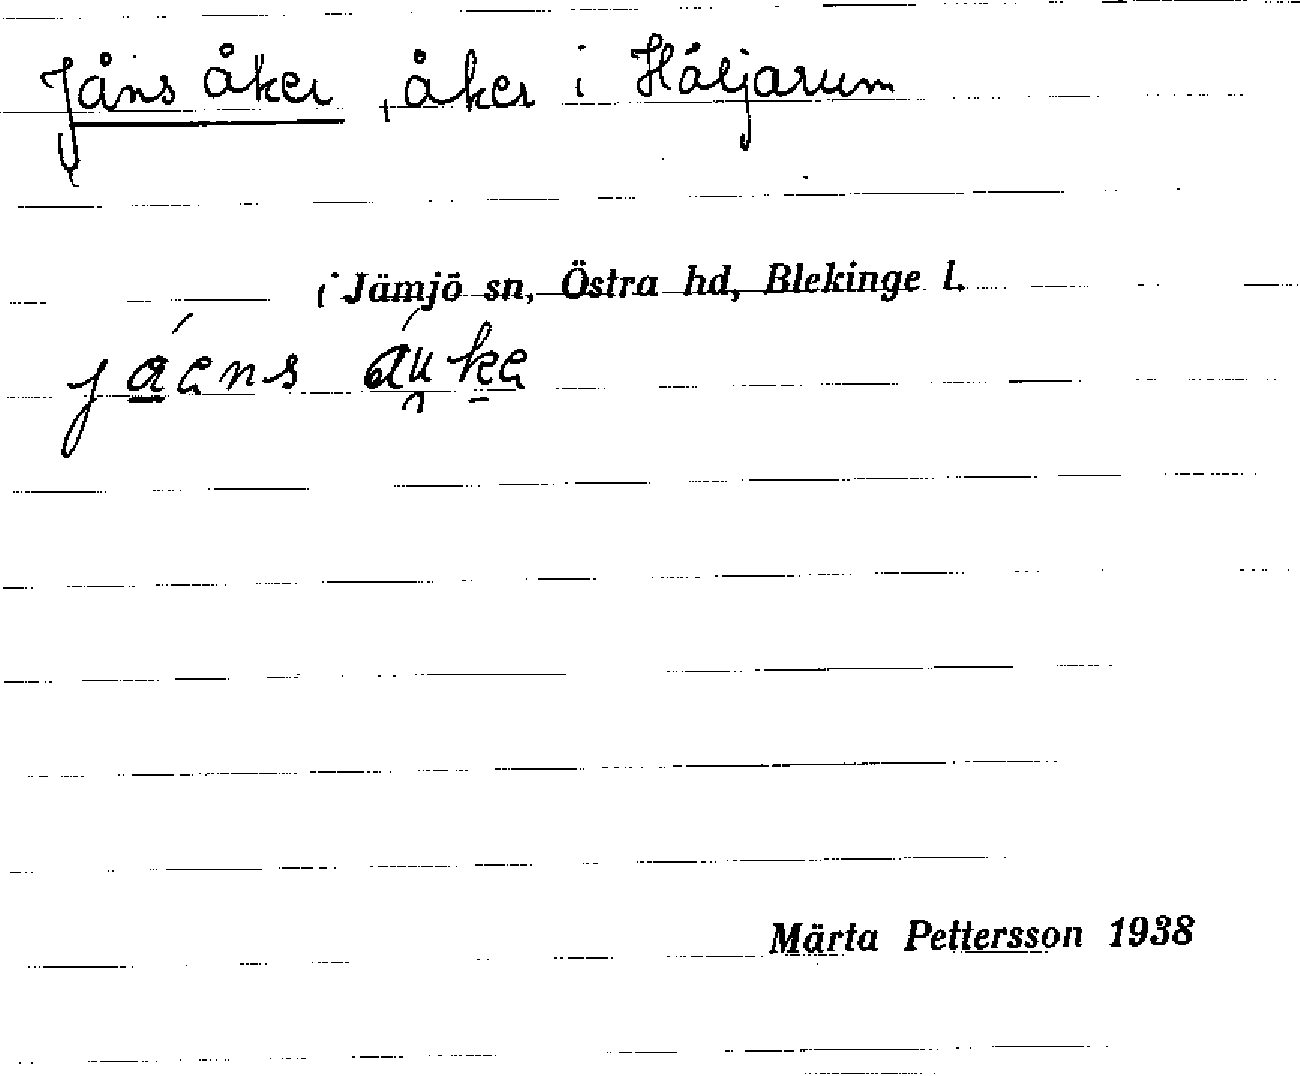 Jåns åker, åker i Håljarum
i Jämjö sn, Östra hd, Blekinge l.
jáens áuke
Märta Pettersson 1938